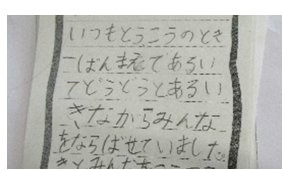 いつもとうこうのとき
一ばんまえであるい
てどうどうとあるい
きながらみんな
をならばせていました
きとみんな